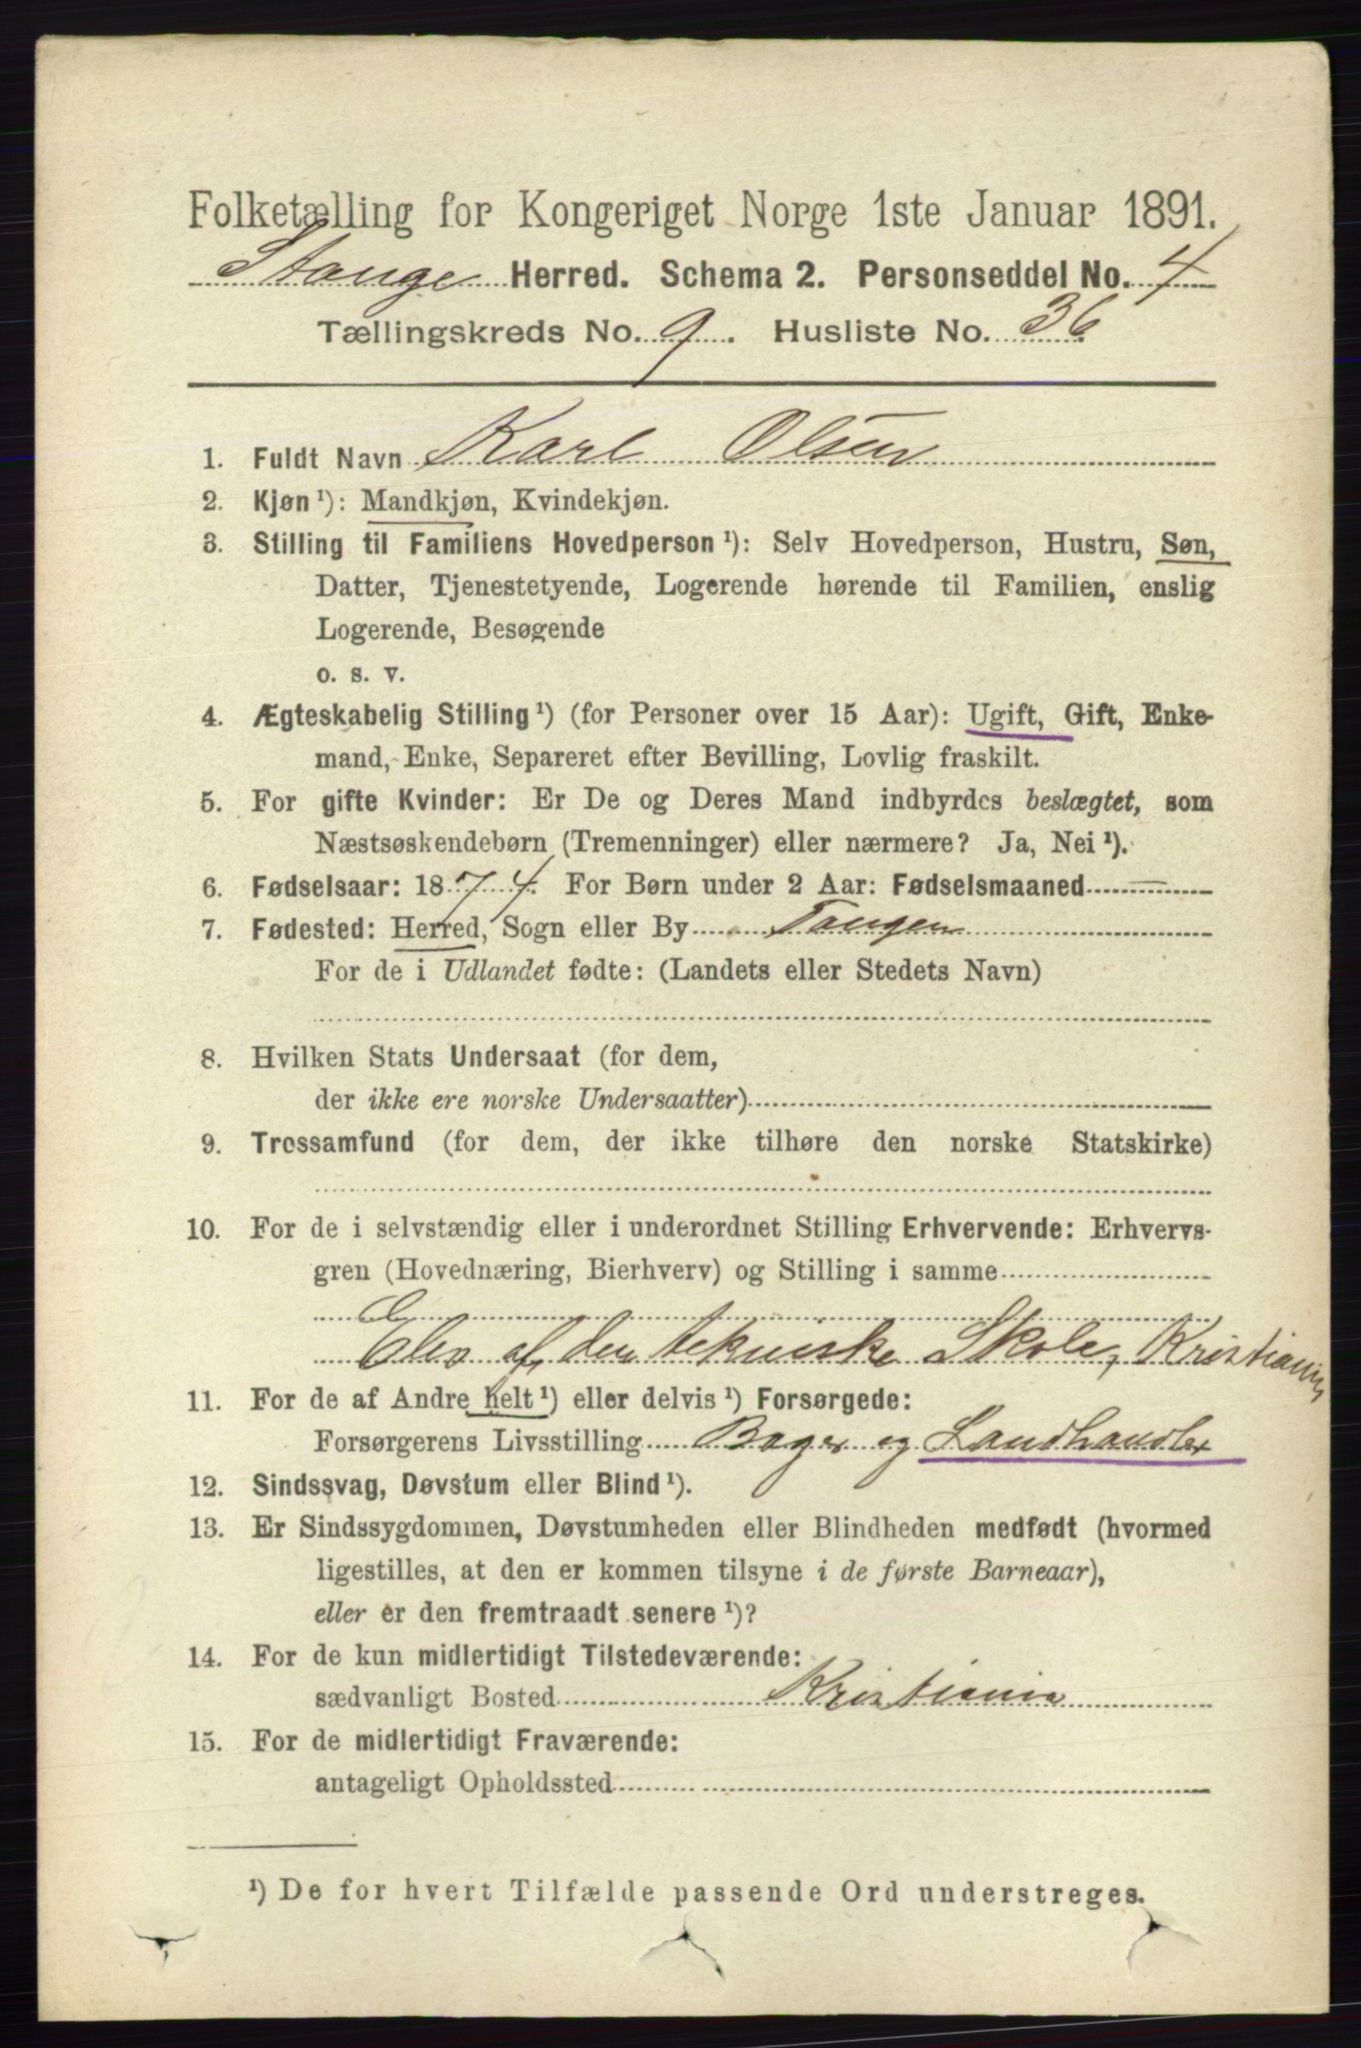 Folketælling for Kongeriget Norge 1ste Januar 1891.
Stange Herred. Schema 2. Personseddel No. 4
Tællingskreds No. 9. Husliste No. 36
1. Fuldt Navn Karl Olsen
2. Kjøn¹): Mandkjøn, Kvindekjøn.
3. Stilling til Familiens Hovedperson¹): Selv Hovedperson, Hustru, Søn,
Datter, Tjenestetyende, Logerende hørende til Familien, enslig
Logerende, Besøgende
o. s. v.
4. Ægteskabelig Stilling¹) (for Personer over 15 Aar): Ugift, Gift, Enke-
mand, Enke, Separeret efter Bevilling, Lovlig fraskilt.
5. For gifte Kvinder: Er De og Deres Mand indbyrdes beslægtet, som
Næstsøskendebørn (Tremenninger) eller nærmere? Ja, Nei¹).
6. Fødselsaar: 1874. For Børn under 2 Aar: Fødselsmaaned
7. Fødested: Herred, Sogn eller By Tangen
For de i Udlandet fødte: (Landets eller Stedets Navn)
8. Hvilken Stats Undersaat (for dem,
der ikke ere norske Undersaatter)
9. Trossamfund (for dem, der ikke tilhøre den norske Statskirke)
10. For de i selvstændig eller i underordnet Stilling Erhvervende: Erhvervs-
gren (Hovednæring, Bierhverv) og Stilling i samme
Elev af den tekniske Skole, Kristiania
11. For de af Andre helt¹) eller delvis¹) Forsørgede:
Forsørgerens Livsstilling Bager og Landhandler
12. Sindssvag, Døvstum eller Blind¹).
13. Er Sindssygdommen, Døvstumheden eller Blindheden medfødt (hvormed
ligestilles, at den er kommen tilsyne i de første Barneaar),
eller er den fremtraadt senere¹)?
14. For de kun midlertidigt Tilstedeværende:
sædvanligt Bosted Kristiania
15. For de midlertidigt Fraværende:
antageligt Opholdssted
¹) De for hvert Tilfælde passende Ord understreges.